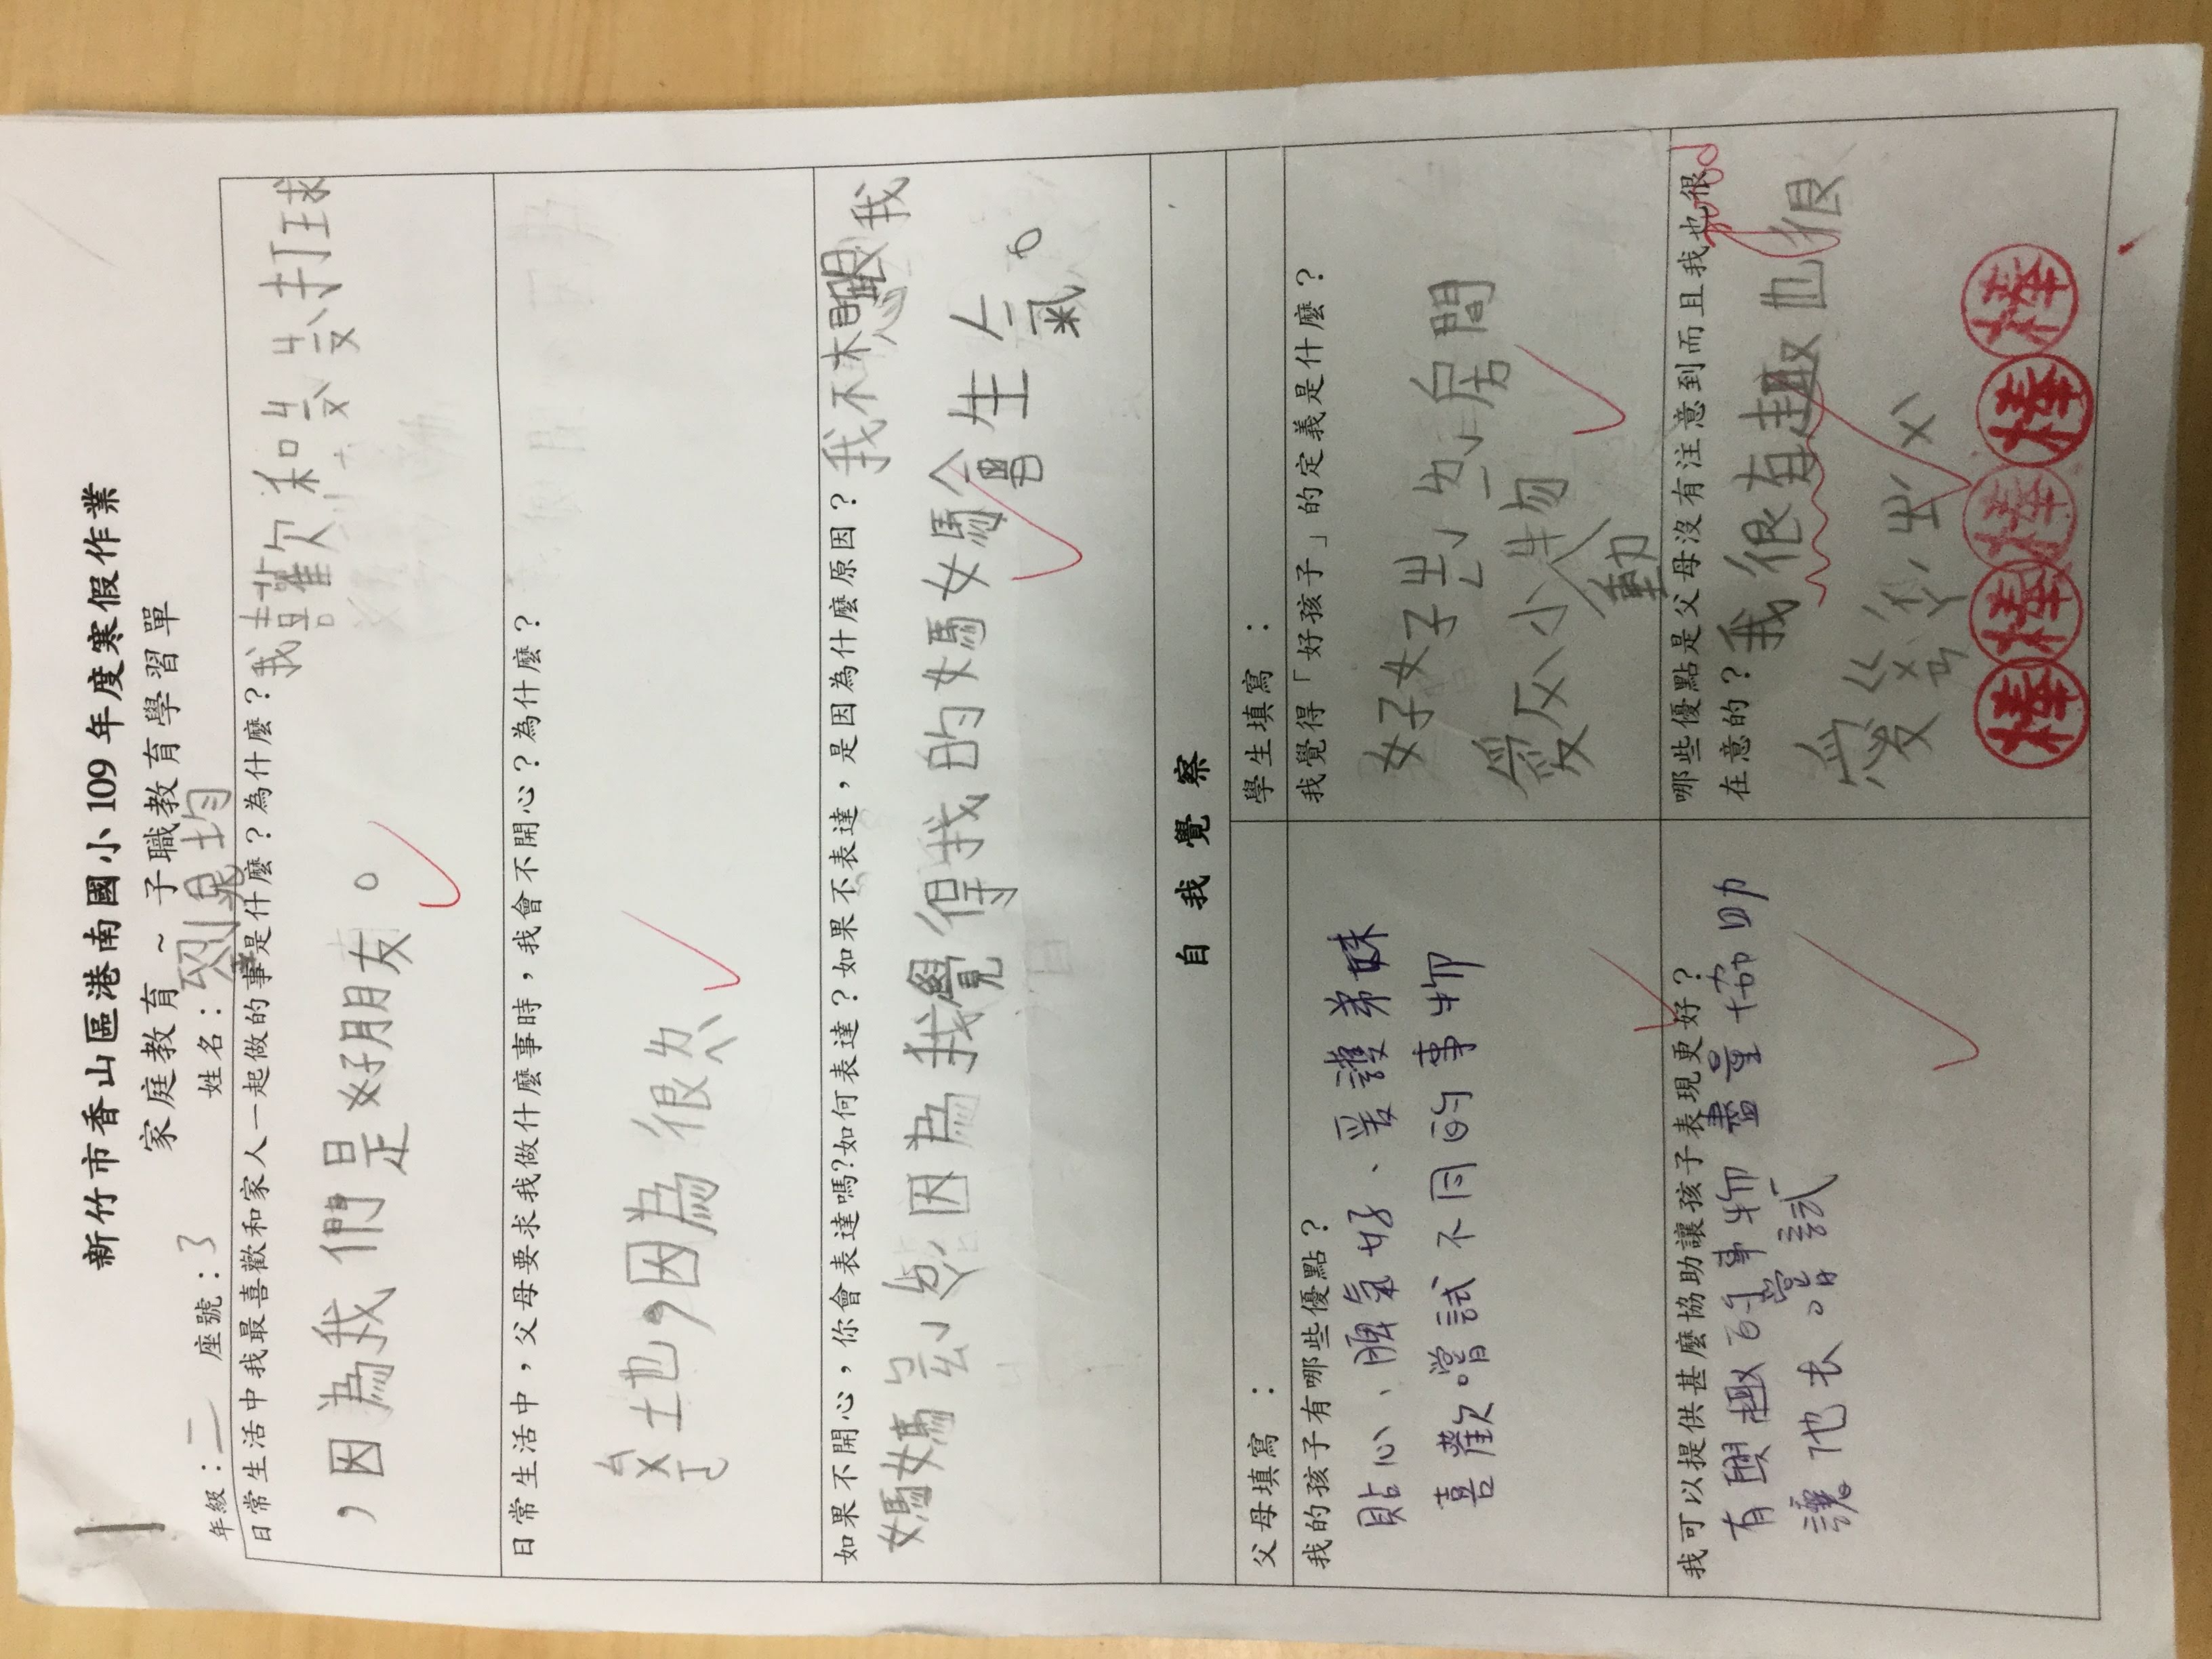 新竹市香山區港南國小109年度寒假作業
家庭教育~子職教育學習單
年級：二 座號：3 姓名：劉 均
日常生活中我最喜歡和家人一起做的事是什麼？為什麼？我喜歡和ㄐㄐ打球
，因為我們是好朋友。
日常生活中，父母要求我做什麼事時，我會不開心？為什麼？
地，因為很ㄌㄟˋ
如果不開心，你會表達嗎?如何表達？如果不表達，是因為什麼原因？我不 跟我
媽媽 因為我覺得我的媽媽會生
氣。
自我覺察
父母填寫：
學生填寫：
我的孩子有哪些優點？
貼心、脾氣好、愛護弟妹
喜歡嚐試不同的事物
我覺得「好孩子」的定義是什麼？
好好 房間
愛 小 物
動
我可以提供甚麼協助讓孩子表現更好？
有興趣的事物盡量協助
讓他去嚐試
哪些優點是父母沒有注意到而且我也很
在意的？我很有趣也很
愛
棒 棒 棒 棒 棒